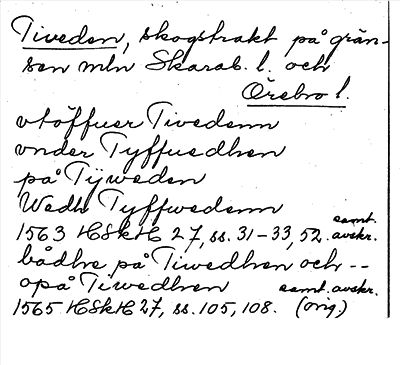 Tiveden, skogstrakt på grän-
sen mln Skarab. l. och
Örebro l.
vtöffuer Tivedenn
vnder Tyffuedhen
på Tijweden
Wedh Tyffwedenn
1563 HSkH 27, ss. 31-33, 52. samt. avskr.
bådhe på Tiwedhen och --
opå Tiwedhren samt. avskr.
1565 HSkH 27, ss. 105, 108. (orig.)